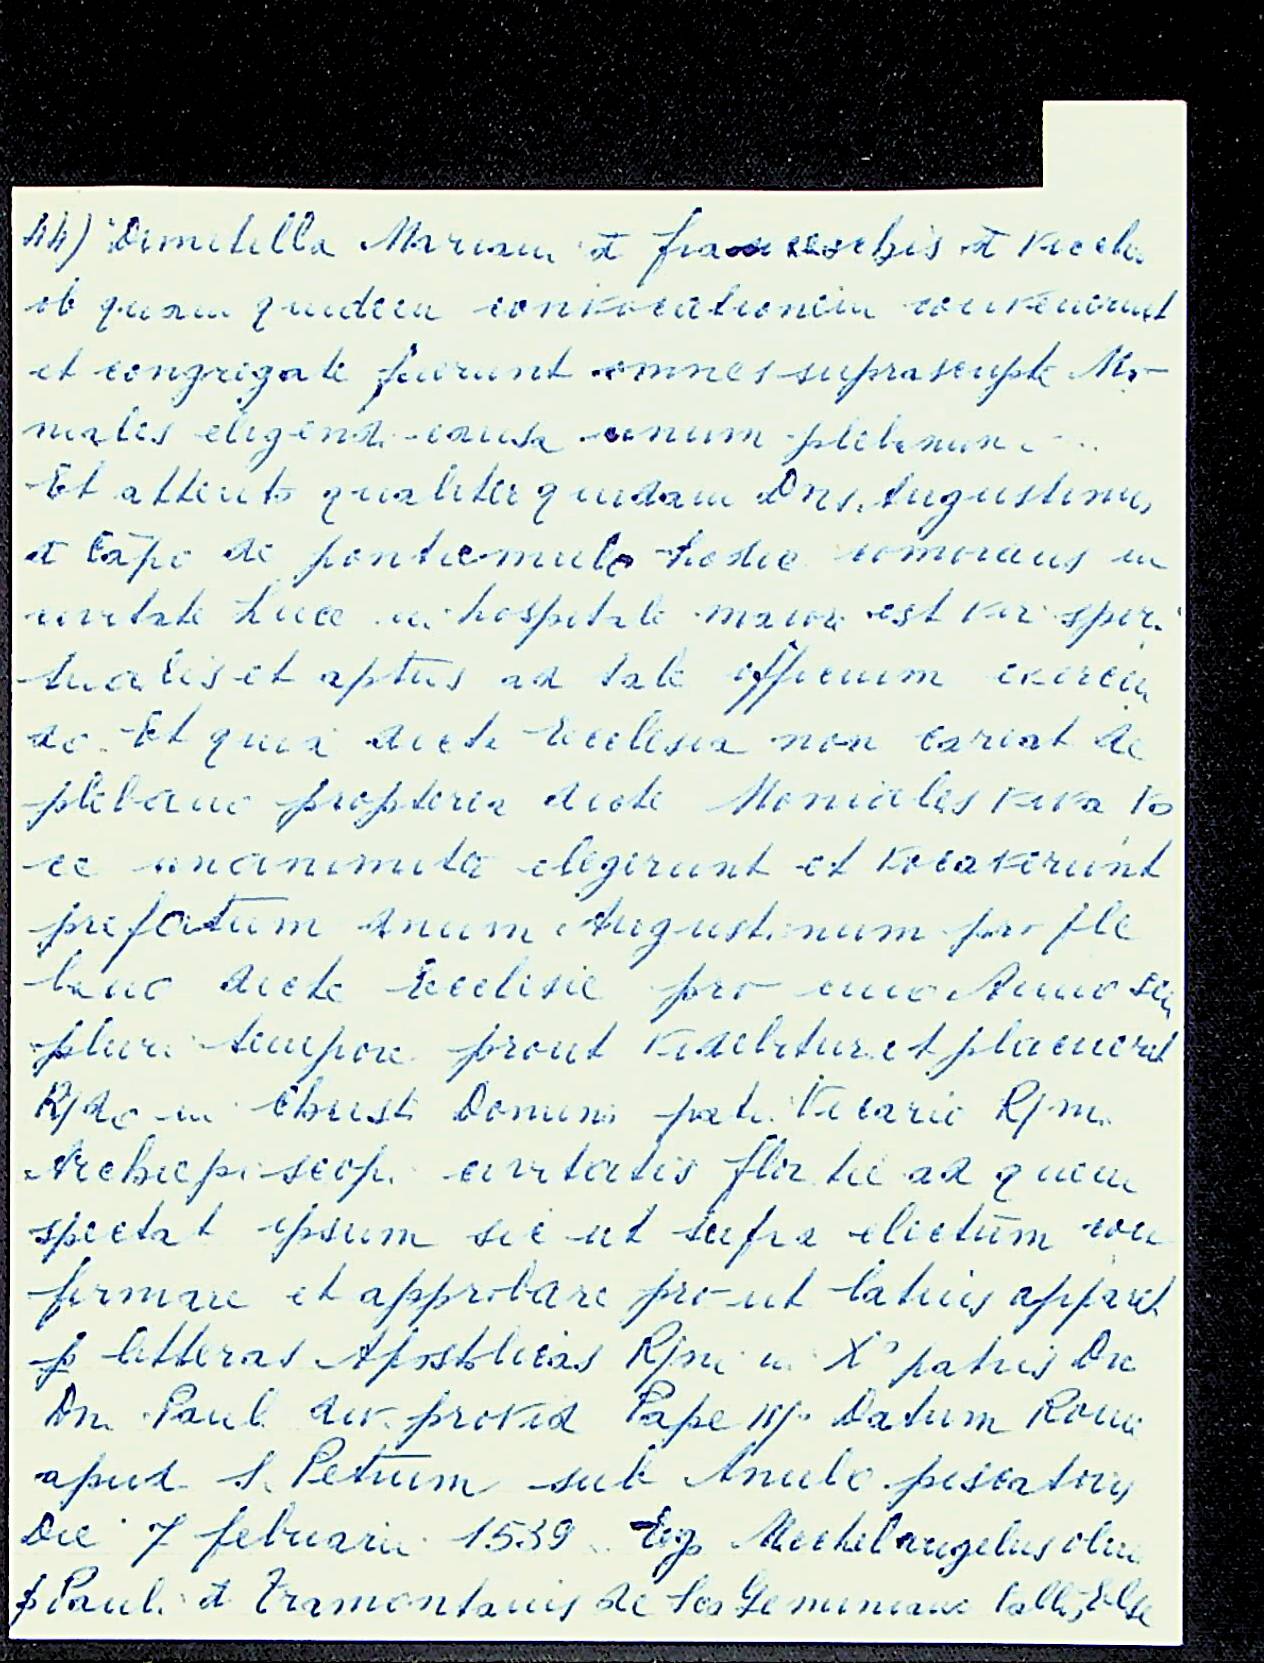 44) Dimitilla Mariani et franceschis et Vicebo
ob quam quidem convocationem convenerunt
et congregate fuerunt omnes suprascripte Mo-
niales eligendi causa unum plebanum ...
Et attento qualiter quidam Dns. Augustinus
de pontremulo hodie comorans in
civitate Luce in hospitale maiori est vir spiri
tualis et aptus ad tale officium exercen
do. Et quia dicta Ecclesia non careat de
plebano propterea dicte Moniales viva vo
ce unanimiter elegerunt et vocaverunt
prefatum dnum Augustinum pro ple
bano dicte Ecclesie pro uno Anno seu
pluri tempore prout videbitur et placuerit
R/do in Christi Domino patri Vicario R/mi
Archiepiscopi civitatis flo.tie ad quem
spectat ipsum sic ut supra electum con
firmare et approbare pro-ut latius apparet
p litteras Apostolicas R/mi in X° patris Dni
Dn. Pauli div. provid Pape iij. Datum Rome
apud S. Petrum sub Anulo piscatoris
Die 7 februarii 1539. Ego Michelangelus olim
p Pauli de Tramontanis de Sco Geminiano Vallis Else